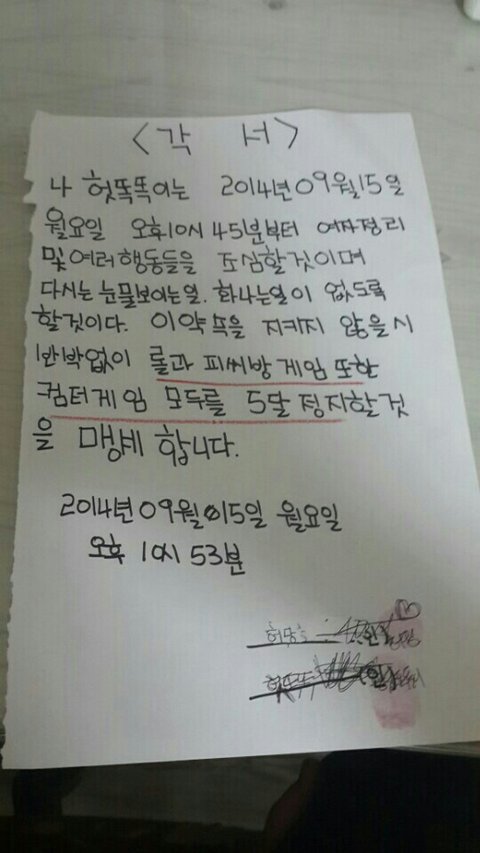 <각 서>
나 헛똑똑이는 2014년 09월15일
월요일 오후10시 45분부터 여자정리
및 여러행동들을 조심할것이며
다시는 눈물보이는일. 화나는일이 없도록
할것이다. 이약속을 지키지 않을시
반박없이 롤과 피씨방게임 또한
컴터게임 모두를 5달 정지할것
을 맹세 합니다.
2014년 09월 15일 월요일
오후 10시 53분